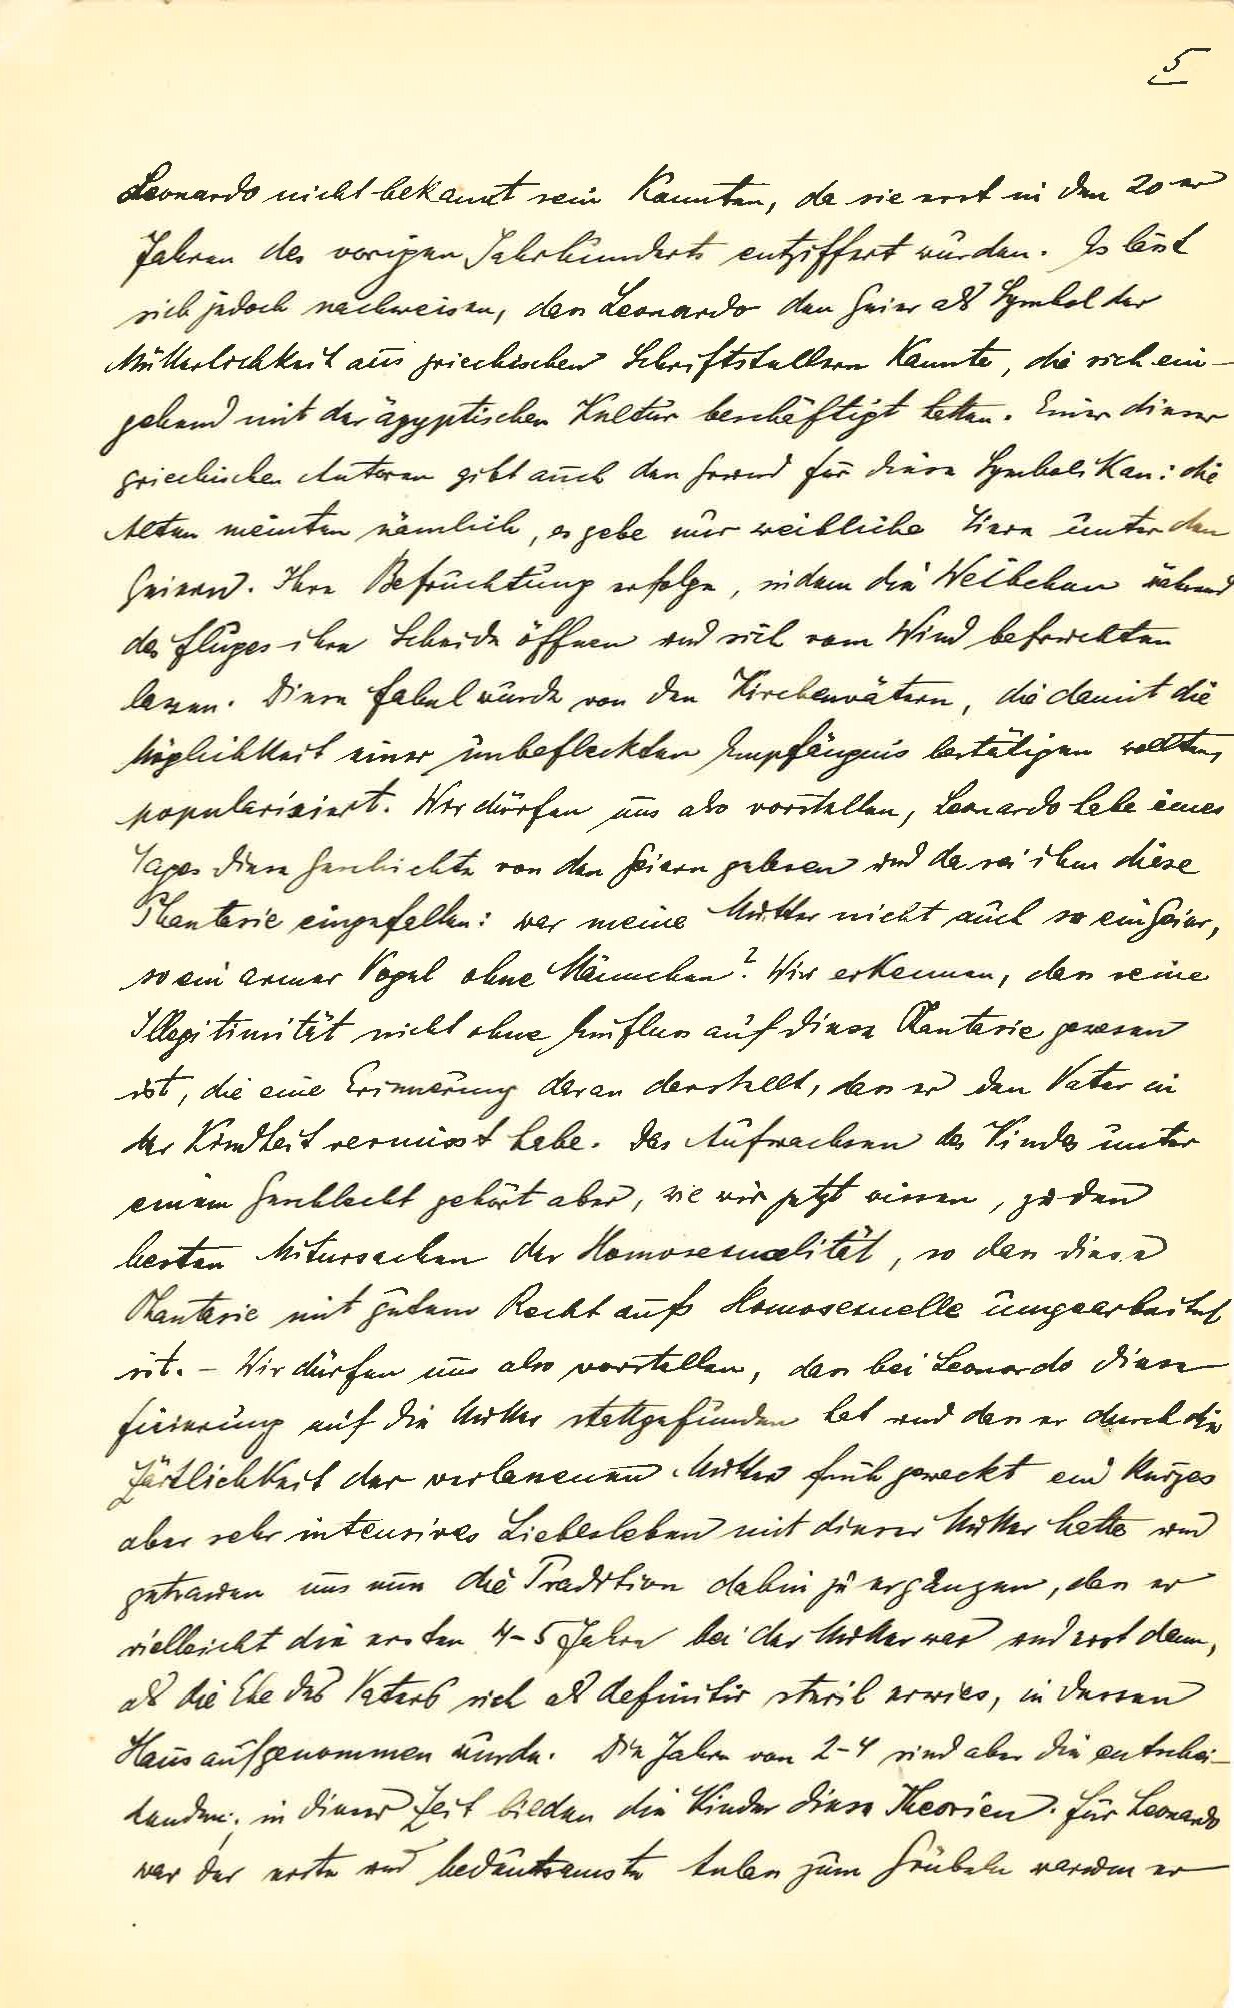 5
Leonardo nicht bekannt sein konnten, da sie erst in den 20er
Jahren des vorigen Jahrhunderts entziffert wurden. Es lässt
sich jedoch nachweisen, dass Leonardo den Geier als Symbol der
Mütterlichkeit aus griechischen Schriftstellern kannte, die sich ein-
gehend mit der ägyptischen Kultur beschäftigt hatten. Einer dieser
griechischen Autoren gibt auch den Grund für diese Symbolik an: die
Alten meinten nämlich, es gebe nur weibliche Tiere unter den
Geiern. Ihre Befruchtung erfolge, indem die Weibchen während
des Fluges ihre Scheide öffnen und sich vom Wind befruchten
lassen. Diese Fabel wurde von den Kirchenvätern, die damit die
Möglichkeit einer unbefleckten Empfängnis bestätigen wollten,
popularisiert. Wir dürfen uns also vorstellen, Leonardo habe eines
Tages diese Geschichte von den Geiern gelesen und da sei ihm diese
Phantasie eingefallen: war meine Mutter nicht auch so ein Geier,
so ein armer Vogel ohne Männchen? Wir erkennen, dass seine
Illegitimität nicht ohne Einfluss auf diese Phantasie gewesen
ist, die eine Erinnerung daran darstellt, dass er den Vater in
der Kindheit vermisst habe. Das Aufwachsen des Kindes unter
einem Geschlecht gehört aber, wie wir jetzt wissen, zu den
besten Mitursachen der Homosexualität, so dass diese
Phantasie mit gutem Recht aufs Homosexuelle umgearbeitet
ist. – Wir dürfen uns also vorstellen, dass bei Leonardo diese
Fixierung auf die Mutter stattgefunden hat und dass er durch die
Zärtlichkeit der verlassenen Mutter früh geweckt ein kurzes
aber sehr intensives Liebesleben mit dieser Mutter hatte und
getrauen uns nun die Tradition dahin zu ergänzen, dass er
vielleicht die ersten 4–5 Jahre bei der Mutter war und erst dann,
als die Ehe des Vaters sich als definitiv steril erwies, in dessen
Haus aufgenommen wurde. Die Jahre von 2–4 sind aber die entschei-
denden; in dieser Zeit bilden die Kinder diese Theorien. Für Leonardo
war der erste und bedeutsamste Anlass zum Grübeln warum er